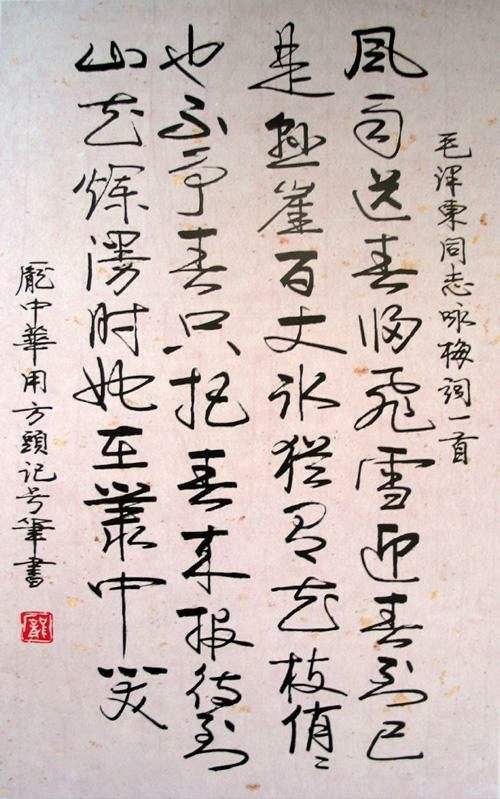 毛泽東同志咏梅词一首
风雨送春归飛雪迎春到已
是悬崖百丈冰犹有花枝俏〻
也不争春只把春来报待到
山花烂漫时她在叢中笑
龐中華用方頭记号筆書